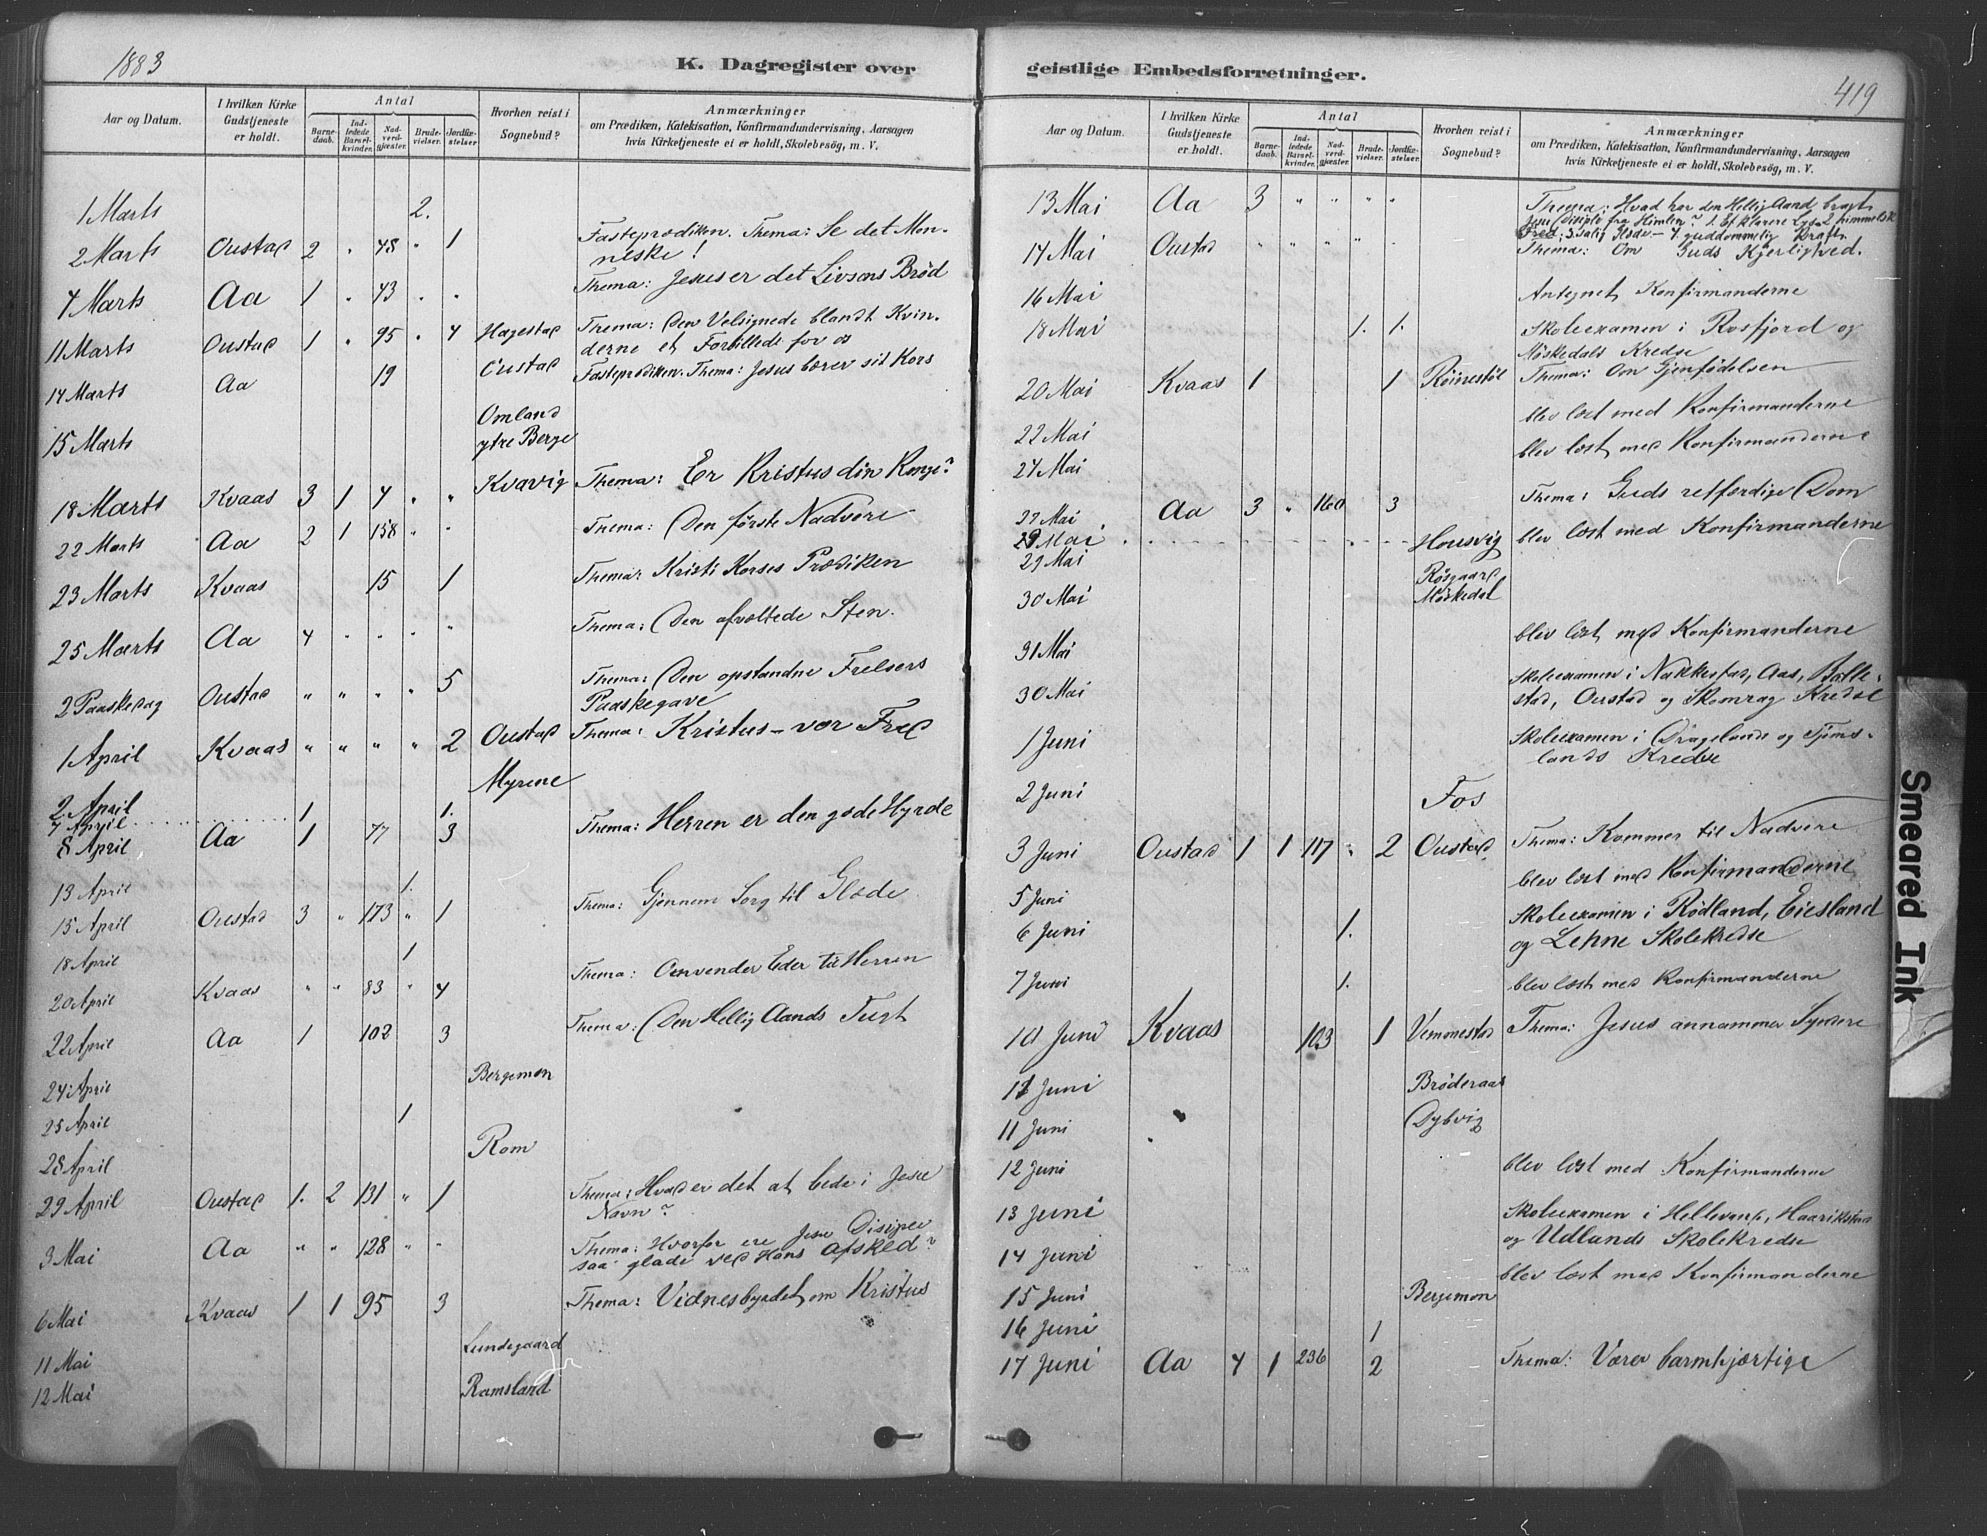 1883
K. Dagregister over
Aar og Datum.
I hvilken Kirke Gudstjeneste er holdt.
Antal
Barnedaab.
Indledede Barselkvinder.
Nadverdgjæster.
Brudevielser.
Jordfæstelser
Hvorhen reist i Sognebud?
Anmærkninger
om Prædiken, Katekisation, Konfirmandundervisning, Aarsagen
hvis Kirketjeneste ei er holdt, Skolebesøg, m. V.
1 Marts 2.
2 Marts Oustad 2 " 48 " 1 Fasteprædiken. Thema: Se det Men-
neske!
4 Marts Aa 1 " 43 " " Thema: Jesus er det Livsens Brød
11 Marts Oustad 1 " 95 " 4 Hægestad Thema: Den Velsignede blandt Kvin-
derne et Forbillede for os
14 Marts Aa 19 Oustad Fasteprædiken. Thema: Jesus bærer sit Kors
15 Marts Omland
ytre Berge
18 Marts Kvaas 3 1 4 " " Kvavig Thema: Er Kristus din Konge?
22 Marts Aa 2 1 158 " " Thema: Den første Nadvere
23 Marts Kvaas 15 1 Thema: Kristi Korses Prædiken
25 Marts Aa 4 " " " " Thema: Den afvæltede Sten.
2 Paaskedag Oustad " " " " 5 Thema: Den opstandne Frelsers
Paaskegave
1 April Kvaas " " " " 2 Oustad Thema: Kristus - vor Fred
Myrene
2 April
7 April 1 1.
8 April Aa 1 77 3 Thema: Herren er den gode Hyrde
13 April 1.
15 April Oustad 3 " 173 " 1 Thema: Gjennem Sorg til Glæde
18 April 1
20 April Kvaas " " 83 " 4 Thema: Omvender Eder til Herren
22 April Aa 1 102 3 Thema: Den Hellig Aands Tugt
24 April Bergemon
25 April 1
28 April Rom
29 April Oustad 1. 2 131 " 1 Thema: Hvad er det at bede i Jesu
Navn?
3 Mai Aa " " 128 " " Thema: Hvorfor ere Jesu Disiple
saa glade ved Hans Afsked?
6 Mai Kvaas 1 1 95 3 Thema: Vidnesbyrdet om Kristus
11 Mai Lundegaard
12 Mai Ramsland
geistlige Embedsforretninger.
419
Aar og Datum.
I hvilken Kirke Gudstjeneste er holdt.
Antal
Barnedaab.
Indledede Barselkvinder.
Nadverdgjæster.
Brudevielser.
Jordfæstelser.
Hvorhen reist i Sognebud?
Anmærkninger
om Prædiken, Katekisation, Konfirmandundervisning, Aarsagen
hvis Kirketjeneste ei er holdt, Skolebesøg, m. V.
13 Mai Aa 3 " " " " Thema: Hvad har den Hellig Aand bragt
Jesu Disiple fra Himlen? 1 Et klarere Lys 2 himmelsk
Fred 3 salig Glæde - 4 guddommelig Kraft.
14 Mai Oustad " " " " " Thema: Om Guds Kjerlighed.
16 Mai Antegnet Konfirmanderne
18 Mai 1. 1. Skoleexamen i Rosfjord og
Møskedals Kredse
20 Mai Kvaas 1 1 Röinestöl Thema: Om Gjenfødelsen
22 Mai blev læst med Konfirmanderne
24 Mai blev læst med Konfirmanderne
27 Mai Aa 3 " 160 3 Thema: Guds retfærdige Dom
29 Mai Housvig blev læst med Konfirmanderne
29 Mai Røsgaard
30 Mai Møskedal
31 Mai blev læst med Konfirmanderne
30 Mai Skoleexamen i Nakkestad, Aas, Bølle-
stad, Oustad og Skomrag Kredse
1 Juni Skoleexamen i Drageland og Tjøms-
lands Kredse
2 Juni Fos
3 Juni Oustad 1 1 117 " 2 Oustad Thema: Kommer til Nadvere
5 Juni blev læst med Konfirmanderne
6 Juni 1. Skoleexamen i Rødland, Eiesland
og Lehne Skolekredse
7 Juni 1. blev læst med Konfirmanderne
10 Juni Kvaas 103 1 Vemmestad Thema: Jesus annammer Syndere
11 Juni Brøderaas
11 Juni Dybvig
12 Juni blev læst med Konfirmanderne
13 Juni Skoleexamen i Hellevand, Haarikstad
og Udlands Skolekredse
14 Juni blev læst med Konfirmanderne
15 Juni Bergemon
16 Juni 1
17 Juni Aa 4 1 236 2 Thema: Værer barmhjærtige
Smeared Ink